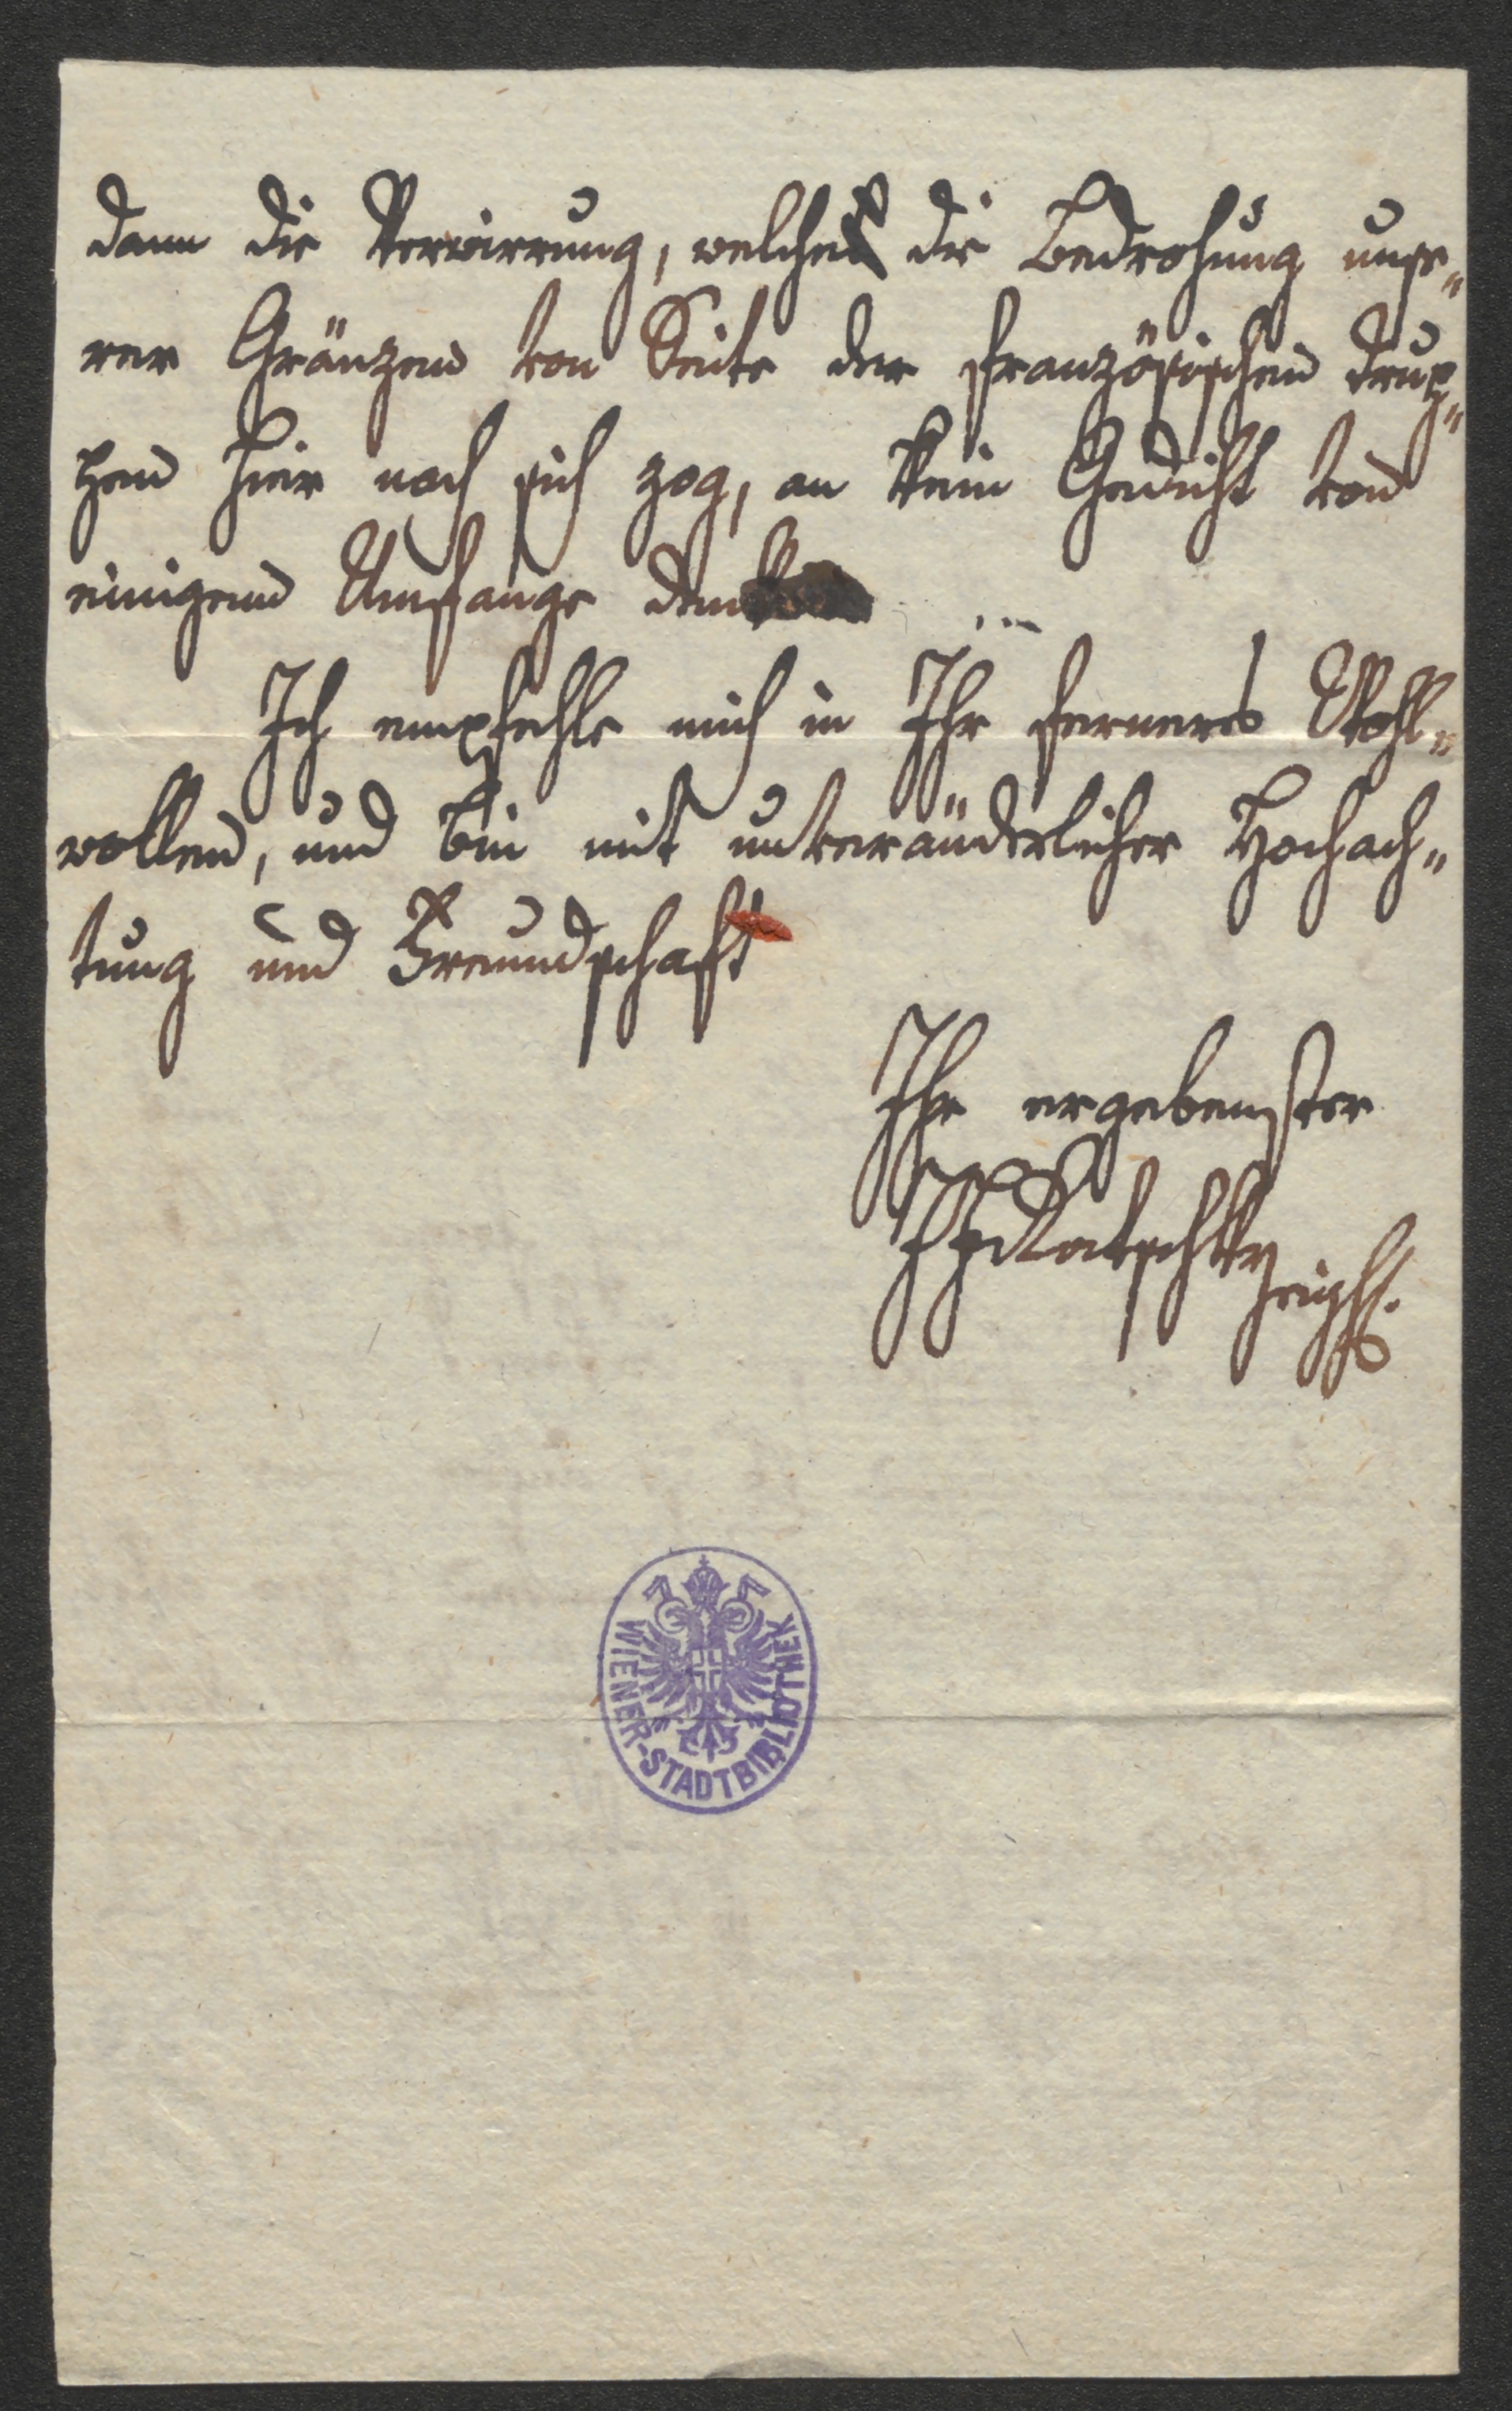 dann die Verwirrung, welche die Bedrohung unse„
rer Gränzen von Seite der französischen Trup„
pen hier nach sich zog, an kein Gedicht von
einigem Umfange denken
Ich empfehle mich in Ihr ferneres Wohl„
wollen, und bin mit unveränderlicher Hochach„
tung und Freundschaft
Ihr ergebenster
JFRatschky
WIENER-STADTBIBLIOTHEK